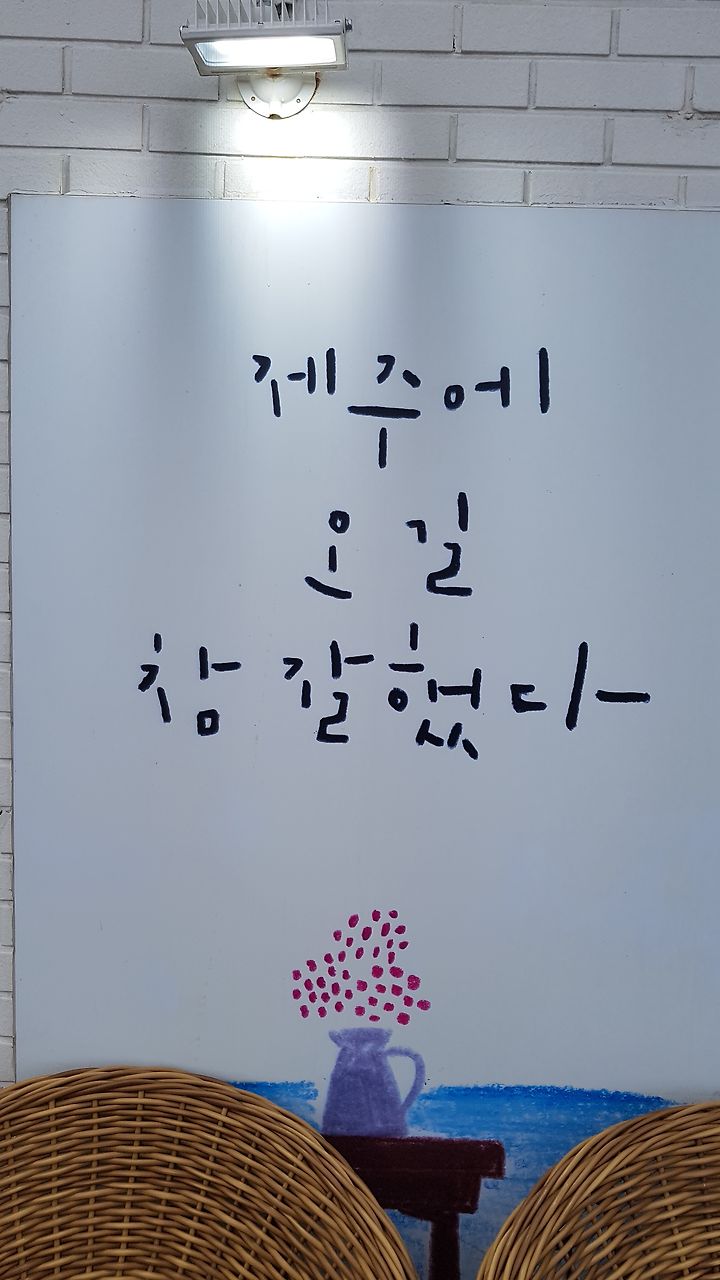 제주에
오길
참 잘했다